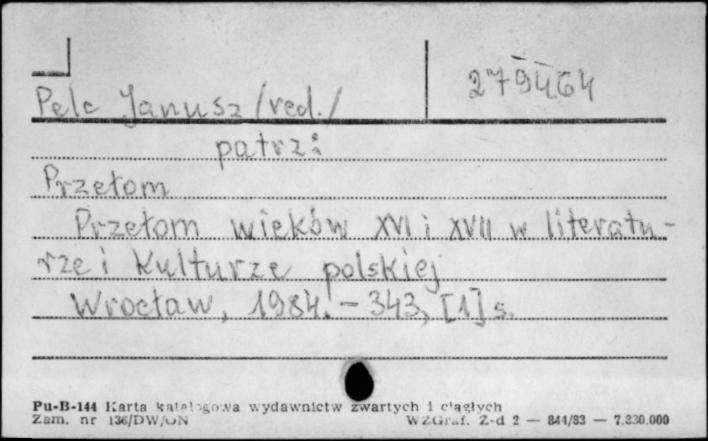 279464
Pelc Janusz /red./
patrz:
Przełom
Przełom wieków XVI i XVII w literatu-
rze i Kulturze polskiej
Wrocław, 1984. - 343, [1] s.
Pu-B-144 Karta katalogowa wydawnictw zwartych i ciągłych
Zam. nr 136/DW/ON WZGraf. Z-d 2 — 844/83 — 7.830.000